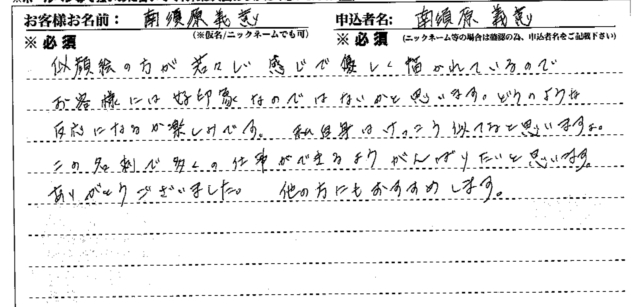 お客様お名前： 南須原義憲 申込者名： 南須原義憲
※ 必須 (※仮名/ニックネームでも可) ※ 必須 (ニックネーム等の場合は確認の為、申込者名をご記載下さい)
似顔絵の方が若々しい感じで優しく描かれているので
お客様には好印象なのではないかと思います。どのような
反応になるか楽しみです。 私自身はけっこう似てると思いますよ。
この名刺で多くの仕事ができるようがんばりたいと思います。
ありがとうございました。 他の方にもおすすめします。